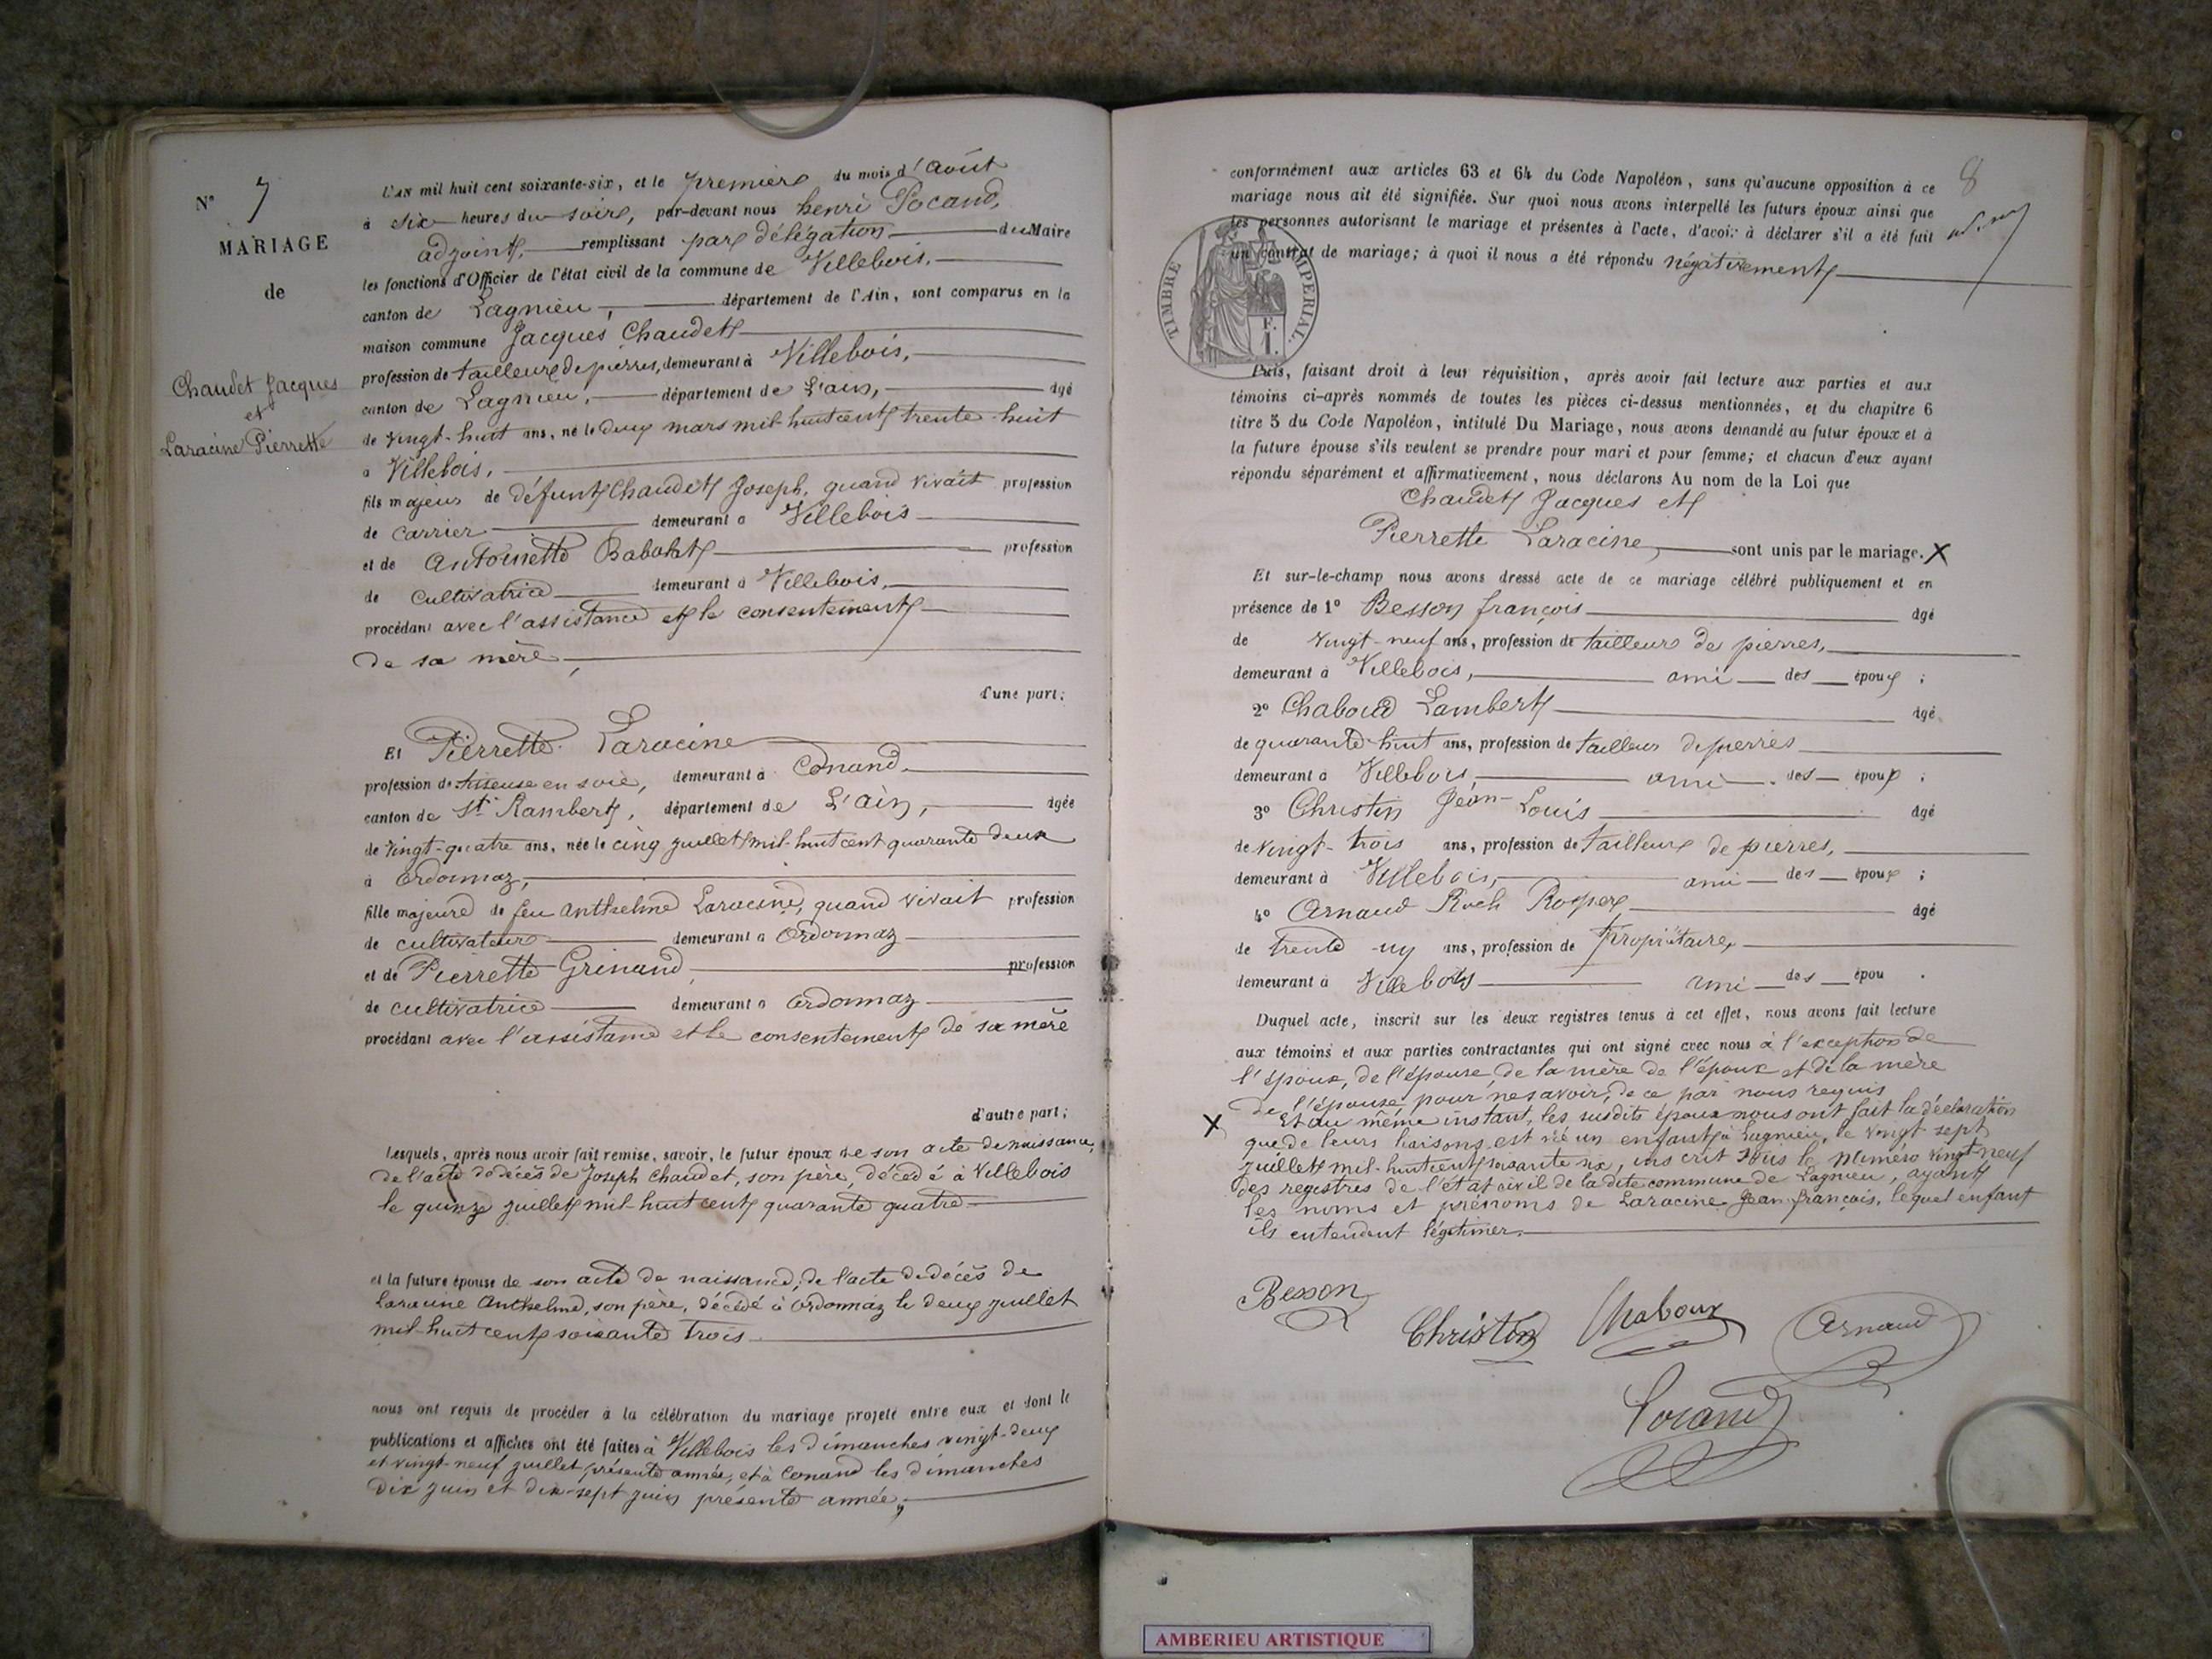 N° 7
MARIAGE
de
Chaudet Jacques
et
Laracine Pierrette
L'AN mil huit cent soixante-six, et le premier du mois d'Août
à six heures du soir, par-devant nous henri Pocand,
adjoint, remplissant par délégation du Maire
les fonctions d'Officier de l'état civil de la commune de Villebois,
canton de Lagnieu, département de l'Ain, sont comparus en la
maison commune Jacques Chaudet
profession de tailleur de pierres, demeurant à Villebois,
canton de Lagnieu, département de L'ain, âgé
de vingt-huit ans, né le deux mars mil-huit cent trente-huit
à Villebois,
fils majeur de défunt Chaudet Joseph, quand vivait profession
de carrier demeurant à Villebois
et de Antoinette profession
de cultivatrice demeurant à Villebois,
procédant avec l'assistance et le consentement
de sa mère,
d'une part;
Et Pierrette Laracine
profession de tisseuse en soie, demeurant à Conand,
canton de St Rambert, département de L'ain, âgée
de vingt-quatre ans, née le cinq juillet mil-huit cent quarante deux
à Ordonnaz,
fille majeure de feu Anthelme Laracine, quand vivait profession
de cultivateur demeurant à Ordonnaz
et de Pierrette Grinand, profession
de cultivatrice demeurant à Ordonnaz
procédant avec l'assistance et le consentement de sa mère
d'autre part;
Lesquels, après nous avoir fait remise, savoir, le futur époux de son acte de naissance,
de l'acte de décès de Joseph Chaudet, son père, décédé à Villebois
le quinze juillet mil-huit cent quarante quatre
et la future épouse de son acte de naissance, de l'acte de décès de
Laracine Anthelme, son père, décédé à Ordonnaz le deux juillet
mil-huit cent soixante trois
nous ont requis de procéder à la célébration du mariage projeté entre eux et dont le
publications et affiches ont été faites à Villebois les dimanches vingt-deux
et vingt-neuf juillet présente année, et à Conand les dimanches
dix juin et dix-sept juin présente année,
8
conformément aux articles 63 et 64 du Code Napoléon, sans qu'aucune opposition à ce
mariage nous ait été signifiée. Sur quoi nous avons interpellé les futurs époux ainsi que
les personnes autorisant le mariage et présentes à l'acte, d'avoir à déclarer s'il a été fait
un contrat de mariage; à quoi il nous a été répondu négativement
TIMBRE IMPERIAL.
F.
1.
Puis, faisant droit à leur réquisition, après avoir fait lecture aux parties et aux
témoins ci-après nommés de toutes les pièces ci-dessus mentionnées, et du chapitre 6
titre 5 du Code Napoléon, intitulé Du Mariage, nous avons demandé au futur époux et à
la future épouse s'ils veulent se prendre pour mari et pour femme; et chacun d'eux ayant
répondu séparément et affirmativement, nous déclarons Au nom de la Loi que
Chaudet Jacques et
Pierrette Laracine, sont unis par le mariage. X
Et sur-le-champ nous avons dressé acte de ce mariage célébré publiquement et en
présence de 1° Besson françois âgé
de vingt-neuf ans, profession de tailleur de pierres,
demeurant à Villebois, ami des époux ;
2° Chaboud Lambert âgé
de quarante-huit ans, profession de tailleur de pierres
demeurant à Villebois, ami des époux ;
3° Christin Jean-Louis âgé
de vingt-trois ans, profession de tailleur de pierres,
demeurant à Villebois, ami des époux ;
4° Arnaud Roch âgé
de trente-un ans, profession de propriétaire,
demeurant à Villebois ami des épou .
Duquel acte, inscrit sur les deux registres tenus à cet effet, nous avons fait lecture
aux témoins et aux parties contractantes qui ont signé avec nous à l'exception de
l'époux, de l'épouse, de la mère de l'époux et de la mère
de l'épouse pour ne savoir, de ce par nous requis
X Et au même instant, les susdits époux nous ont fait la déclaration
que de leurs liaisons est né un enfant à Lagnieu, le vingt sept
juillet mil-huit cent soixante six, inscrit sous le numéro vingt-neuf
des registres de l'état civil de la dite commune de Lagnieu, ayant
les noms et prénoms de Laracine Jean françois, lequel enfant
ils entendent légitimer.
Besson
Christin Chaboux Arnaud
Pocand
AMBERIEU ARTISTIQUE